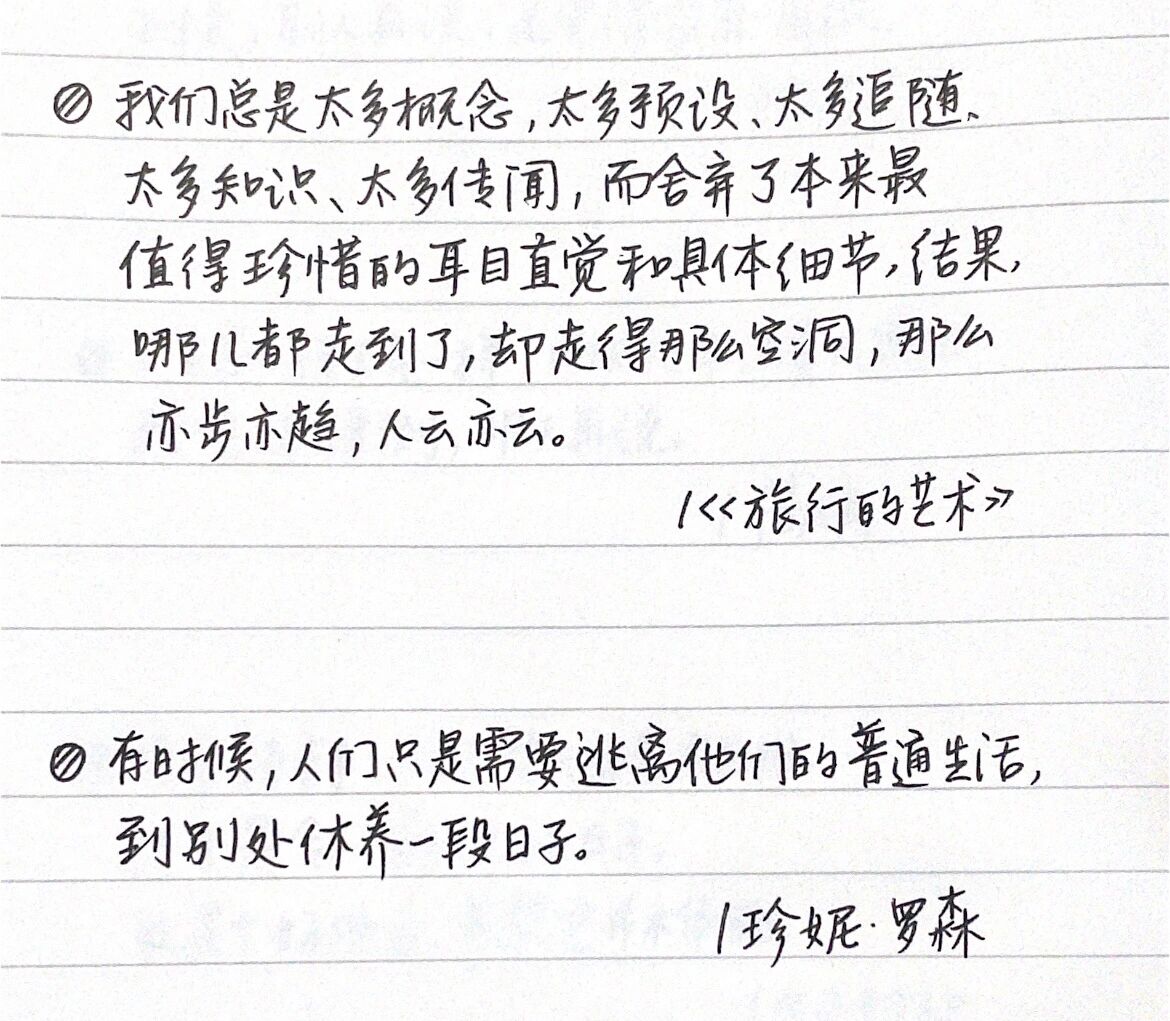 我们总是太多概念,太多预设、太多追随、
太多知识、太多传闻,而舍弃了本来最
值得珍惜的耳目直觉和具体细节,结果,
哪儿都走到了,却走得那么空洞,那么
亦步亦趋,人云亦云。
/<<旅行的艺术>>
有时候,人们只是需要逃离他们的普通生活,
到别处休养一段日子。
/珍妮·罗森